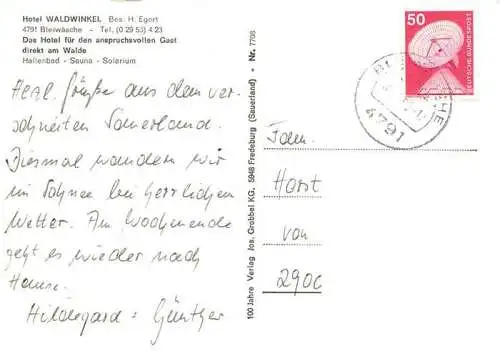 Hotel WALDWINKEL Bes. H. Egert
4791 Bleiwäsche - Tel. (0 29 53) 4 23
Das Hotel für den anspruchsvollen Gast
direkt am Walde
Hallenbad - Sauna - Solarium
Herzl. Grüße aus dem ver-
schneiten Sauerland.
Diesmal wandern wir
im Schnee bei herrlichem
Wetter. Am Wochenende
geht es wieder nach
Hause.
Hildegard + Günther
100 Jahre Verlag Jos. Grobbel KG, 5948 Fredeburg (Sauerland) • Nr. 7708
50
DEUTSCHE BUNDESPOST
4791
Fam.
Horst
von
2900